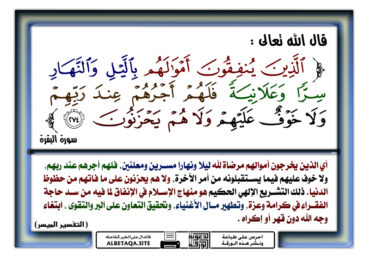 قال الله تعالى :
﴿ ٱلَّذِينَ يُنفِقُونَ أَمْوَٰلَهُم بِٱلَّيْلِ وَٱلنَّهَارِ
سِرًّا وَعَلَانِيَةً فَلَهُمْ أَجْرُهُمْ عِندَ رَبِّهِمْ
وَلَا خَوْفٌ عَلَيْهِمْ وَلَا هُمْ يَحْزَنُونَ ٢٧٤ ﴾
سورة البقرة
أي الذين يخرجون أموالهم مرضاة لله ليلا ونهارا مسرين ومعلنين، فلهم أجرهم عند ربهم،
ولا خوف عليهم فيما يستقبلونه من أمر الآخرة، ولا هم يحزنون على ما فاتهم من حظوظ
الدنيا. ذلك التشريع الإلهي الحكيم هو منهاج الإسلام في الإنفاق لما فيه من سد حاجة
الفقراء في كرامة وعزة، وتطهير مال الأغنياء، وتحقيق التعاون على البر والتقوى، ابتغاء
وجه الله دون قهر أو إكراه .
(التفسير الميسر)
احرص على طباعة
ونشر هذه الورقة
فالدال على الخير كفاعله
ALBETAQA.SITE